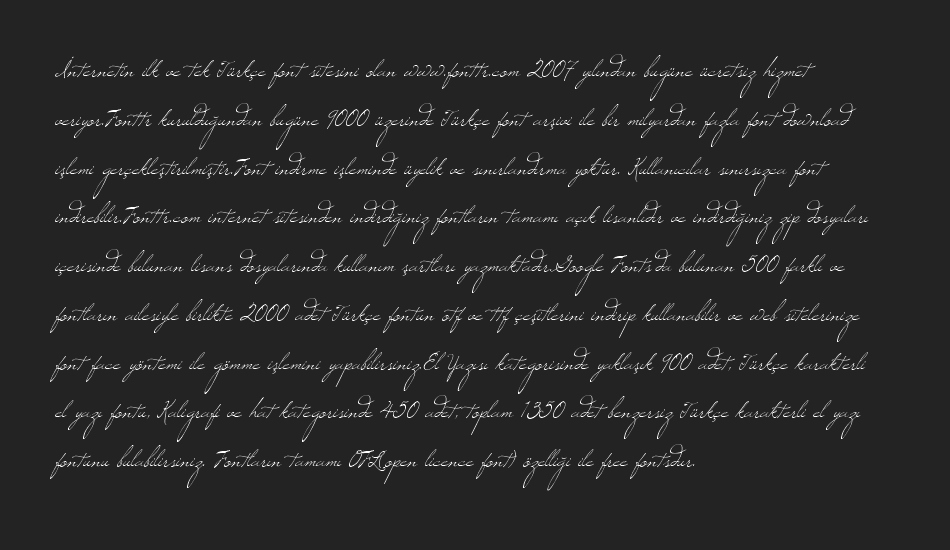 İnternetin ilk ve tek Türkçe font sitesini olan www.fonttr.com 2007 yılından bugüne ücretsiz hizmet
veriyor.Fonttr kurulduğundan bugüne 9000 üzerinde Türkçe font arşivi ile bir milyardan fazla font download
işlemi gerçekleştirilmiştir.Font indirme işleminde üyelik ve sınırlandırma yoktur. Kullanıcılar sınırsızca font
indirebilir.Fonttr.com internet sitesinden indirdiğiniz fontların tamamı açık lisanlıdır ve indirdiğiniz zip dosyaları
içerisinde bulunan lisans dosyalarında kullanım şartları yazmaktadır.Google Fonts'da bulunan 500 farklı ve
fontların ailesiyle birlikte 2000 adet Türkçe fontun otf ve ttf çeşitlerini indirip kullanabilir ve web sitelerinize
font face yöntemi ile gömme işlemini yapabilirsiniz.El Yazısı kategorisinde yaklaşık 900 adet, Türkçe karakterli
el yazı fontu, Kaligrafi ve hat kategorisinde 450 adet, toplam 1350 adet benzersiz Türkçe karakterli el yazı
fontunu bulabilirsiniz. Fontların tamamı OFL(open licence font) özelliği ile free fontsdur.